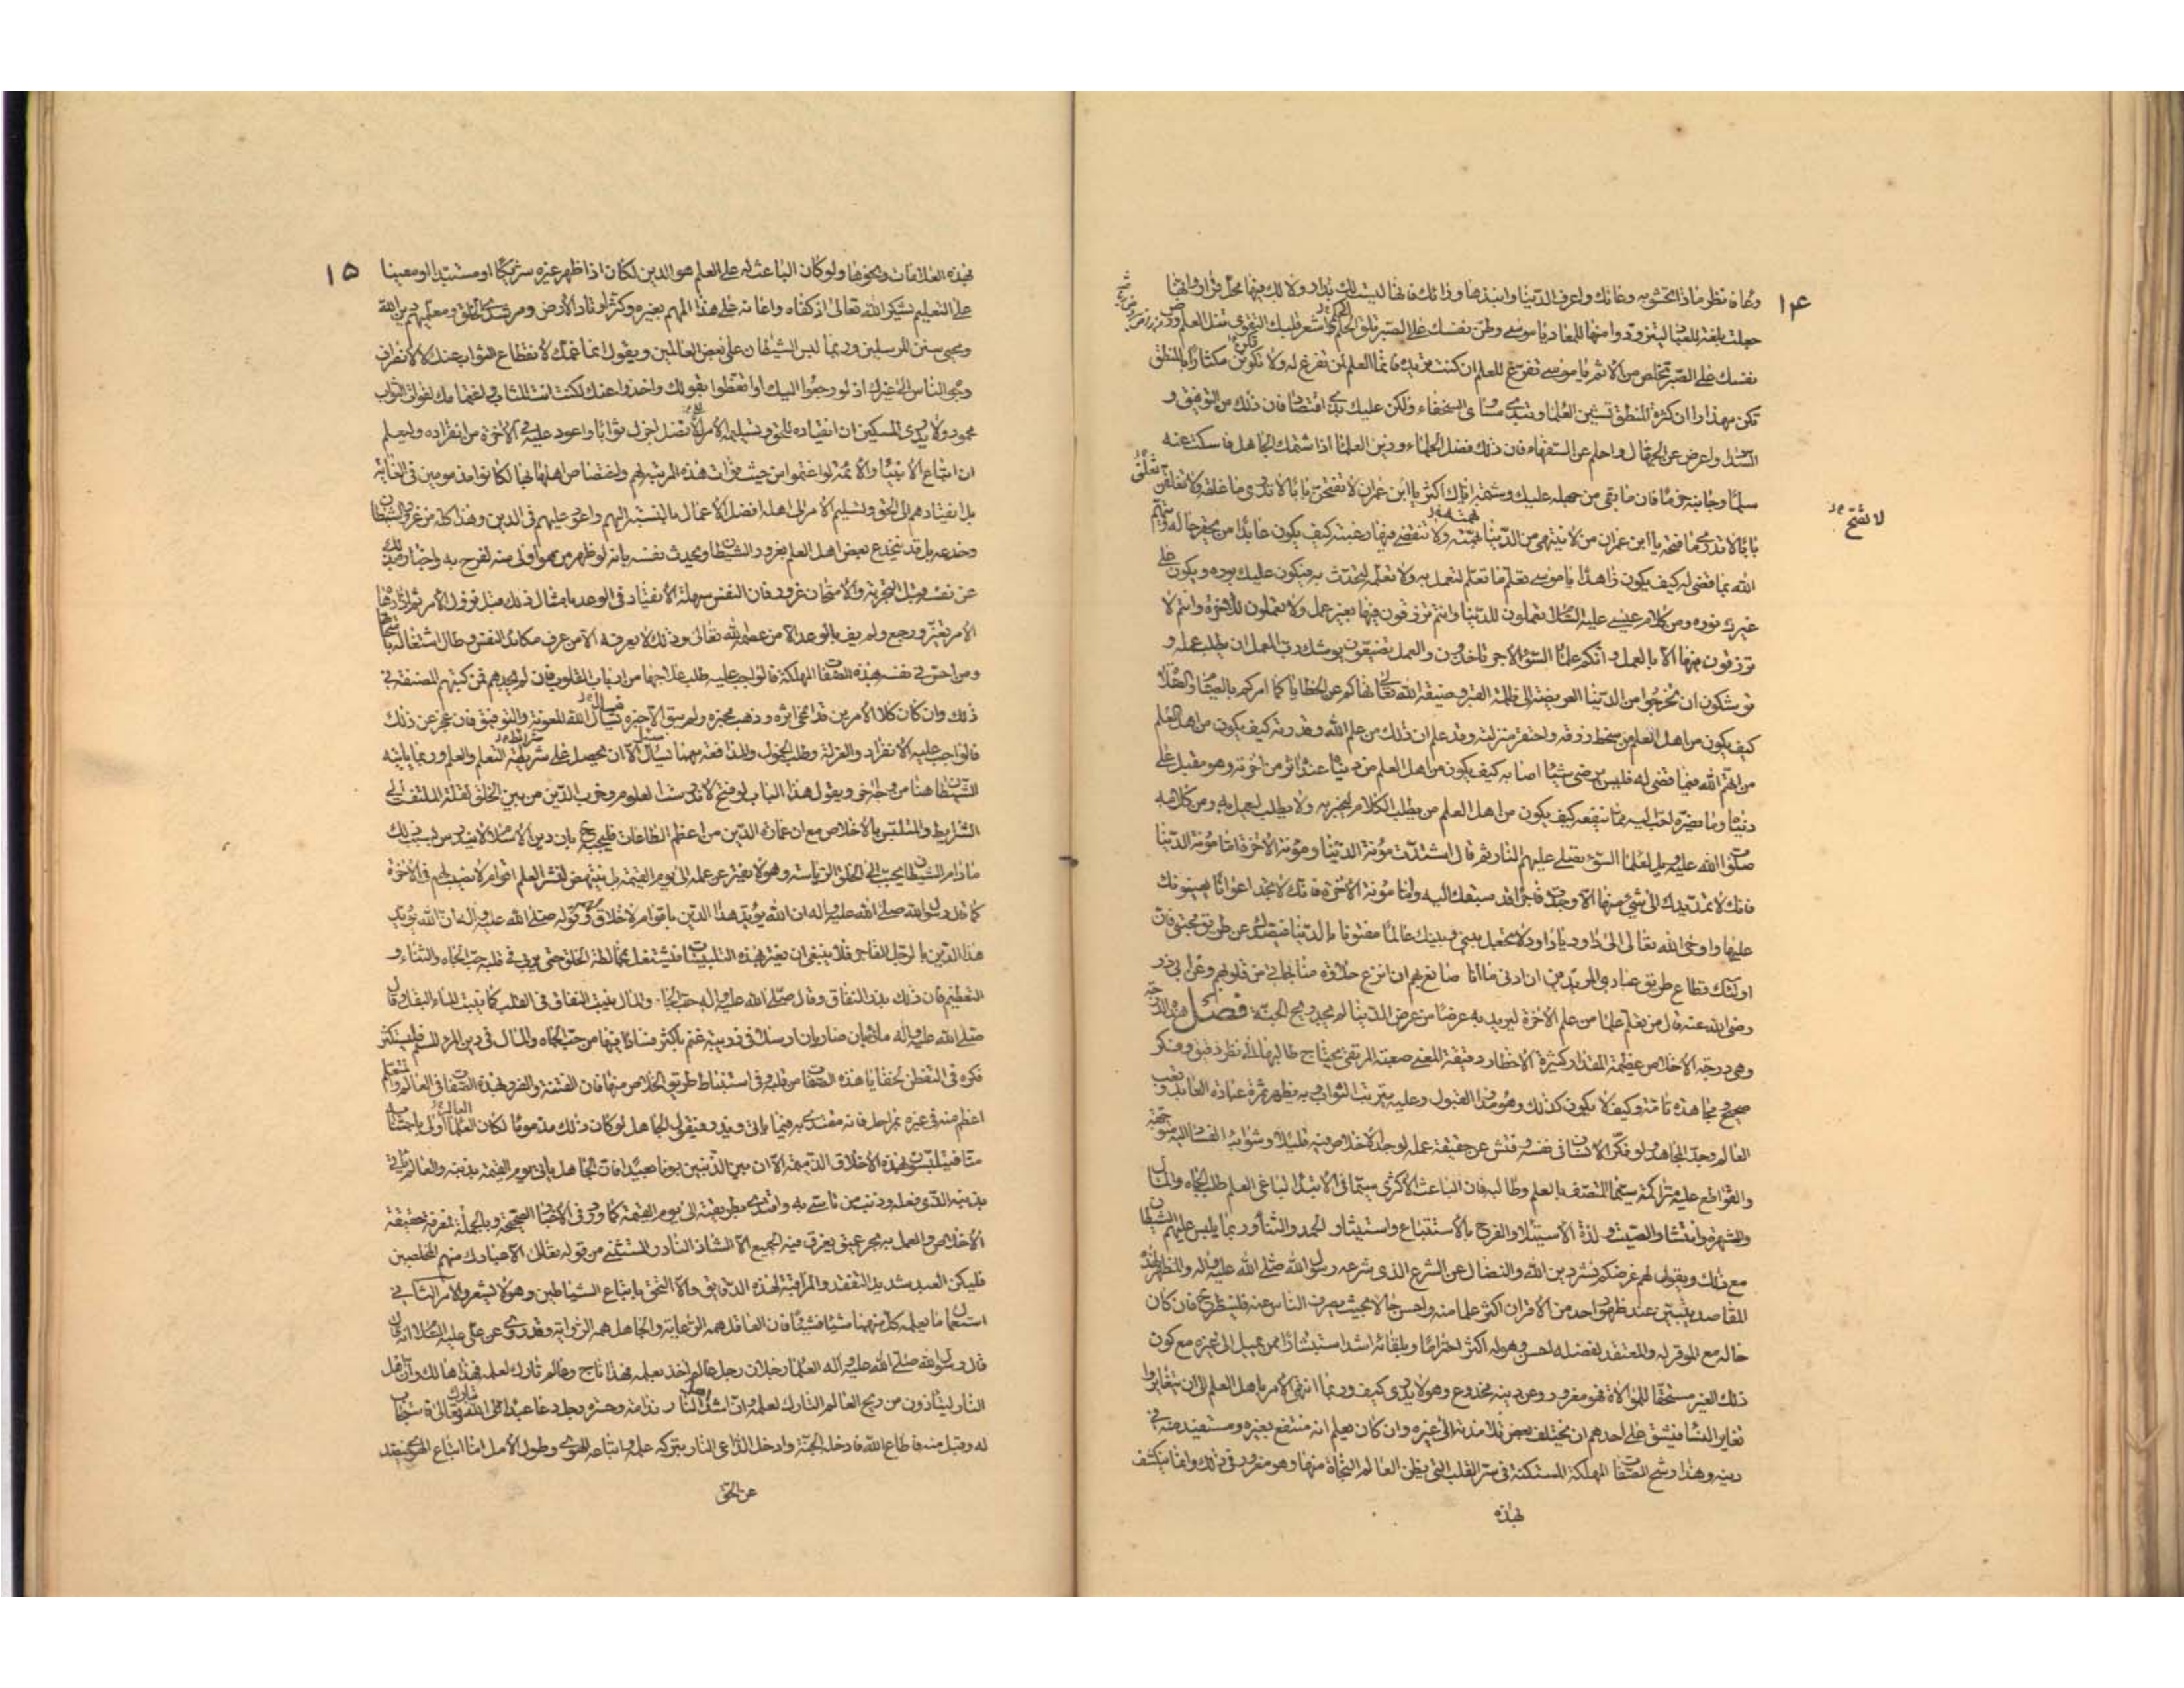 ١٤
وعاء فانظر ماذا تحشو به وعائك واعرف الدنيا وانبذها ورائك فانها ليست لك بدار ولا لك فيها محل قرار وانها
جعلت بلغة للعباد ليتزودوا منها للمعاد يا موسى وطن نفسك على الصبر تلق الحلم واشعر قلبك التقوى تنل العلم ورض
نفسك على الصبر تخلص من الاثم يا موسى تفرغ للعلم ان كنت تريده فانما العلم لمن تفرغ له ولا تكونن مكثارا بالمنطق
تكن مهذارا ان كثرة المنطق تشين العلماء وتبدى مساوى السخفاء ولكن عليك بذى اقتصاد فان ذلك من التوفيق و
السداد واعرض عن الجهال واحلم عن السفهاء فان ذلك فضل الحلماء وزين العلماء اذا شتمك الجاهل فاسكت عنه
سلما وجانبه حزما فان ما بقى من جهله عليك وشتمه اياك اكثر يا ابن عمران لا تفتحن بابا لا تدرى ما غلقه ولا تغلقن
لا تفتح
بابا لا تدرى ما فتحه يا ابن عمران من لا ينتهى من الدنيا نهمته ولا تنقضى فيها رغبته كيف يكون عابدا من يحقر حاله ويتهم
الله بما قضى له كيف يكون زاهدا يا موسى تعلم ما تعلم لتعمل به ولا تعلمه لتحدث به فيكون عليك بوره ويكون على
غيرك نوره ومن كلام عيسى عليه السلام تعملون للدنيا وانتم ترزقون فيها بغير عمل ولا تعملون للآخرة وانتم لا
ترزقون فيها الا بالعمل ويلكم علماء السوء الاجر تاخذون والعمل تضيعون يوشك رب العمل ان يطلب عمله و
توشكون ان تخرجوا من الدنيا العريضة الى ظلمة القبر وضيقه الله تعالى نهاكم عن الخطايا كما امركم بالصيام والصلاة
كيف يكون من اهل العلم من سخط رزقه واحتقر منزلته وقد علم ان ذلك من علم الله وقدرته كيف يكون من اهل العلم
من اتهم الله فيما قضى له فليس يرضى شيئا اصابه كيف يكون من اهل العلم من دنياه عنده اثر من اخرته وهو مقبل على
دنياه وما يضره احب اليه مما ينفعه كيف يكون من اهل العلم من يطلب الكلام ليخبر به ولا يطلب ليعمل به ومن كلامه
صلوات الله عليه ويل لعلماء السوء تصلى عليهم النار ثم قال اشتدت مؤنة الدنيا ومؤنة الآخرة اما مؤنة الدنيا
فانك لا تمد يدك الى شيء منها الا وجدت فاجرا قد سبقك اليه واما مؤنة الآخرة فانك لا تجد اعوانا يعينونك
عليها واوحى الله تعالى الى داود يا داود لا تجعل بينى وبينك عالما مفتونا بالدنيا فيصدك عن طريق محبتى فان
اولئك قطاع طريق عبادى المريدين ان ادنى ما انا صانع بهم ان انزع حلاوة مناجاتى من قلوبهم وعن ابى ذر
رضى الله عنه قال من تعلم علما من علم الآخرة ليريد به عرضا من عرض الدنيا لم يجد ريح الجنة فصل هذه الدرجة
وهى درجة الاخلاص عظيمة المقدار كثيرة الاخطار دقيقة المعنى صعبة المرتقى يحتاج طالبها الى نظر دقيق وفكر
صحيح ومجاهدة تامة وكيف لا يكون كذلك وهو مدار القبول وعليه يترتب الثواب وبه يظهر ثمرة عبادة العابد وتعب
العالم وجد المجاهد ولو فكر الانسان فى نفسه وفتش عن حقيقة عمله لوجد الاخلاص فيه قليلا وشوائب الفساد اليه متوجهة
والقواطع عليه متراكمة سيما المتصف بالعلم وطالبه فان الباعث الاكثرى سيما فى الابتداء لباغى العلم طلب الجاه والمال
والشهرة وانتشار الصيت ولذة الاستيلاء والفرح بالاستتباع واستيثار الحمد والثناء وربما يلبس عليهم الشيطان
مع ذلك ويقول لهم غرضكم نشر دين الله والنضال عن الشرع الذى شرعه رسول الله صلى الله عليه واله والمظهر لهذه
المقاصد يتبين عند ظهور احد من الاقران اكثر علما منه واحسن حالا بحيث يصرف الناس عنه فلينظر ح فان كان
حاله مع الموقر له والمعتقد لفضله احسن وهو له اكثر احتراما وبلقائه اشد استبشارا ممن يميل الى غيره مع كون
ذلك الغير مستحقا للموالاة فهو مغرور وعن دينه مخدوع وهو لا يدرى كيف وربما انتهى الامر باهل العلم الى ان يتغايروا
تغاير النساء فيشق على احدهم ان يختلف بعض تلامذته الى غيره وان كان يعلم انه منتفع بغيره ومستفيد منه فى
دينه وهذا رشح الصفات المهلكة المستكنة فى سر القلب التى يظن العالم النجاة منها وهو مغرور فى ذلك وانما ينكشف
بهذه
١٥
بهذه العلامات ونحوها ولو كان الباعث له على العلم هو الدين لكان اذا ظهر غيره شريكا او مستبدا او معينا
على التعليم لشكر الله تعالى اذ كفاه واعانه على هذا المهم بغيره وكثر اوتاد الارض ومرشدى الخلق ومعلميهم دين الله
ومحيى سنن المرسلين وربما لبس الشيطان على بعض العالمين ويقول انما غمك لانقطاع الثواب عنك لا لانصراف
وجوه الناس الى غيرك اذ لو رجعوا اليك او اتعظوا بقولك واخذوا عنك لكنت انت المثاب واغتمامك لفوات الثواب
محمود ولا يدرى المسكين ان انقياده للحق وتسليمه الامر الافضل اجزل ثوابا واعود عليه فى الآخرة من انفراده وليعلم
ان اتباع الانبياء والائمة لو اغتموا من حيث فوات هذه المرتبة لهم واختصاص اهلها بها لكانوا مذمومين فى الغاية
بل انقيادهم الى الحق وتسليم الامر الى اهله افضل الاعمال بالنسبة اليهم واعود عليهم فى الدين وهذا كله من غرور الشيطان
وخدعه بل قد ينخدع بعض اهل العلم بغرور الشيطان ويحدث نفسه بانه لو ظهر من هو اولى منه لفرح به واخباره بذلك
عن نفسه قبل التجربة والامتحان غرور فان النفس سهلة الانقياد فى الوعد بامثال ذلك قبل نزول الامر ثم اذا دهاه
الامر تغير ورجع ولم يف بالوعد الا من عصمه الله تعالى وذلك لا يعرفه الا من عرف مكائد النفس وطال اشتغاله بامتحانها
ومن احس فى نفسه بهذه الصفات المهلكة فالواجب عليه طلب علاجها من ارباب القلوب فان لم يجدهم فمن كتبهم المصنفة فى
ذلك وان كان كلا الامرين قد امحى اثره وذهب مخبره ولم يبق الا خبره يسأل الله المعونة والتوفيق فان عجز عن ذلك
فالواجب عليه الانفراد والعزلة وطلب الخمول والمدافعة مهما يسأل الا ان يحصل على شريطة التعلم والعلم وربما ياتيه
الشيطان هنا من وجه اخر ويقول هذا الباب لو فتح لاندرست العلوم وخرب الدين من بين الخلق لقلة الملتفت الى
الشرايط والمتلبس بالاخلاص مع ان عمارة الدين من اعظم الطاعات فليجبه ح بان دين الاسلام لا يندرس بسبب ذلك
ما دام الشيطان يحبب الى الخلق الرياسة وهو لا يفتر عن عمله الى يوم القيمة بل ينتهض لنشر العلم اقوام لا نصيب لهم فى الآخرة
كما قال رسول الله صلى الله عليه واله ان الله يؤيد هذا الدين باقوام لا خلاق لهم وقوله صلى الله عليه واله ان الله يؤيد
هذا الدين بالرجل الفاجر فلا ينبغى ان يغتر بهذه التلبيسات فيشتغل بمخالطة الخلق حتى يربى فى قلبه حب الجاه والثناء و
التعظيم فان ذلك بذر النفاق وقال صلى الله عليه واله حب الجاه والمال ينبت النفاق فى القلب كما ينبت الماء البقل وقال
صلى الله عليه واله ما ذئبان ضاريان ارسلا فى زريبة غنم باكثر فسادا فيها من حب الجاه والمال فى دين المرء المسلم فليكن
فكره فى التفطن لخفايا هذه الصفات من قلبه وفى استنباط طريق الخلاص منها فان الفتنة والضرر بهذه الصفات فى العالم والمتعلم
اعظم منه فى غيره بمراحل فانه مقتدى به فيما ياتى ويذر فيقول الجاهل لو كان ذلك مذموما لكان العلماء اولى باجتنابه
منا فيتلبس بهذه الاخلاق الذميمة الا ان بين الذنبين بونا بعيدا فان الجاهل ياتى يوم القيمة بذنبه والعالم ياتى
بذنبه الذى فعله وذنب من تاسى به واقتدى بطريقته الى يوم القيمة كما ورد فى الاخبار الصحيحة وبالجملة فمعرفة حقيقة
الاخلاص والعمل به بحر عميق يغرق فيه الجميع الا الشاذ النادر المستثنى من قوله تعالى الا عبادك منهم المخلصين
فليكن العبد شديد التفقد والمراقبة لهذه الدقايق والا التحق باتباع الشياطين وهو لا يشعر والامر الثانى
استعمال ما يعلمه كل منهما شيئا فشيئا فان العاقل همه الرعاية والجاهل همه الرواية وقد روى عن على عليه السلام انه قال
قال رسول الله صلى الله عليه واله العلماء رجلان رجل عالم اخذ بعلمه فهذا ناج وعالم تارك لعلمه فهذا هالك وان اهل
النار ليتاذون من ريح العالم التارك لعلمه وان اشد اهل النار ندامة وحسرة رجل دعا عبدا الى الله تعالى فاستجاب
له وقبل منه فاطاع الله فادخله الجنة وادخل الداعى النار بتركه علمه واتباعه الهوى وطول الامل اما اتباع الهوى فيصد
عن الحق